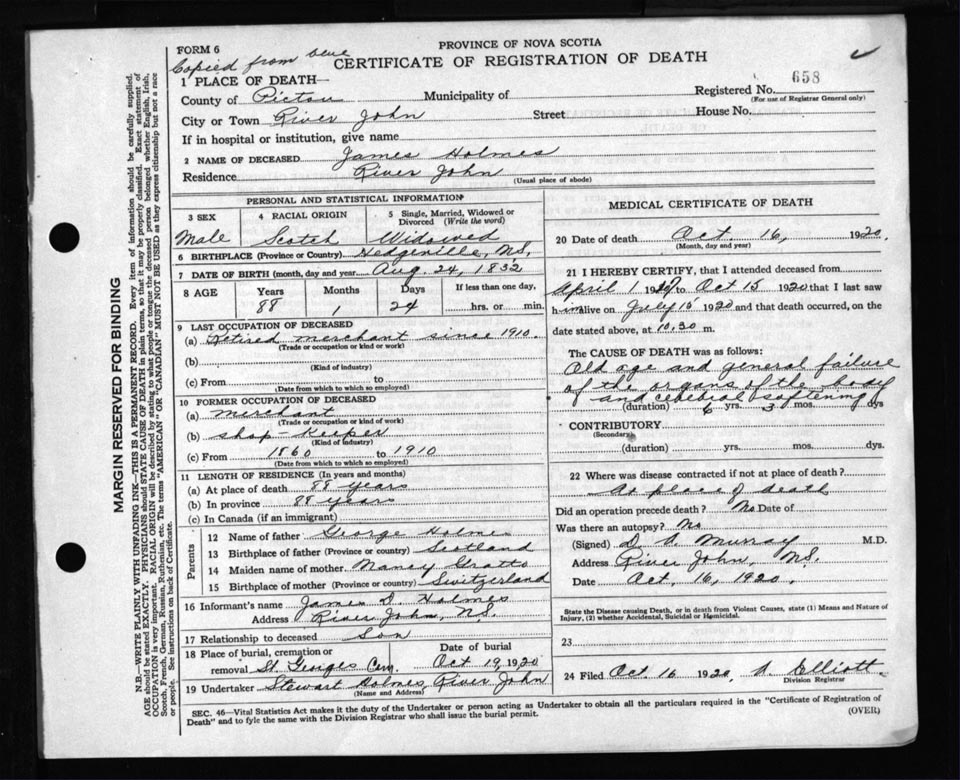 PROVINCE OF NOVA SCOTIA
FORM 6
Copied from blue
CERTIFICATE OF REGISTRATION OF DEATH
1 PLACE OF DEATH—
658
County of Pictou Municipality of
Registered No.
(For use of Registrar General only)
City or Town River John Street House No.
If in hospital or institution, give name
2 NAME OF DECEASED James Holmes
Residence River John
(Usual place of abode)
PERSONAL AND STATISTICAL INFORMATION
3 SEX
4 RACIAL ORIGIN
5 Single, Married, Widowed or Divorced (Write the word)
Male Scotch Widowed
6 BIRTHPLACE (Province or Country) Hedgeville, N.S.
7 DATE OF BIRTH (month, day and year) Aug. 24, 1832
8 AGE Years Months Days If less than one day,
88 1 24 hrs. or min.
9 LAST OCCUPATION OF DECEASED
(a) Retired merchant since 1910.
(Trade or occupation or kind or work)
(b)
(Kind of industry)
(c) From to
(Date from which to which so employed)
10 FORMER OCCUPATION OF DECEASED
(a) merchant
(Trade or occupation or kind of work)
(b) shop-keeper
(Kind of industry)
(c) From 1860 to 1910
(Date from which to which so employed)
11 LENGTH OF RESIDENCE (In years and months)
(a) At place of death 88 years
(b) In province 88 years
(c) In Canada (if an immigrant)
Parents
12 Name of father George Holmes
13 Birthplace of father (Province or country) Scotland
14 Maiden name of mother Nancy Gratto
15 Birthplace of mother (Province or country) Switzerland
16 Informant's name James D. Holmes
Address River John, N.S.
17 Relationship to deceased Son
18 Place of burial, cremation or removal St. Georges Cem.
Date of burial Oct 19, 1920
19 Undertaker Stewart Holmes River John
(Name and Address)
MEDICAL CERTIFICATE OF DEATH
20 Date of death Oct. 16, 1920.
(Month, day and year)
21 I HEREBY CERTIFY, that I attended deceased from
April 1 19 to Oct 15 1920 that I last saw
him alive on July 15 1920 and that death occurred, on the
date stated above, at 10,30 m.
The CAUSE OF DEATH was as follows:
Old age and general failure
of the organs of the body
and cerebral softening
(duration) 6 yrs. 3 mos. dys
CONTRIBUTORY
(Secondary)
(duration) yrs. mos. dys.
22 Where was disease contracted if not at place of death?
At place of death
Did an operation precede death? No Date of
Was there an autopsy? No
(Signed) D. A. Murray M.D.
Address River John, N.S.
Date Oct. 16, 1920.
State the Disease causing Death, or in death from Violent Causes, state (1) Means and Nature of Injury, (2) whether Accidental, Suicidal or Homicidal.
23
24 Filed Oct. 16 1920, A Elliott
Division Registrar
SEC. 46—Vital Statistics Act makes it the duty of the Undertaker or person acting as Undertaker to obtain all the particulars required in the "Certificate of Registration of
Death" and to fyle the same with the Division Registrar who shall issue the burial permit.
(OVER)
MARGIN RESERVED FOR BINDING
N.B.—WRITE PLAINLY WITH UNFADING INK—THIS IS A PERMANENT RECORD. Every item of information should be carefully supplied.
AGE should be stated EXACTLY. PHYSICIANS should STATE CAUSE OF DEATH in plain terms, so that it may be properly classified. Exact statement of
OCCUPATION is very important. RACIAL ORIGIN will be described by stating to what people or tongue the deceased person belonged whether English, Irish,
Scotch, French, German, Russian, Ruthenian, etc. The terms "AMERICAN" OR "CANADIAN" MUST NOT BE USED as they express citizenship but not a race
or people. See instructions on back of Certificate.